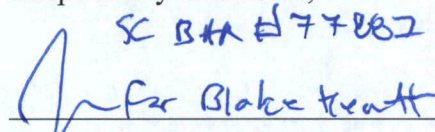 SC BAR #77882
for Blake Hewitt